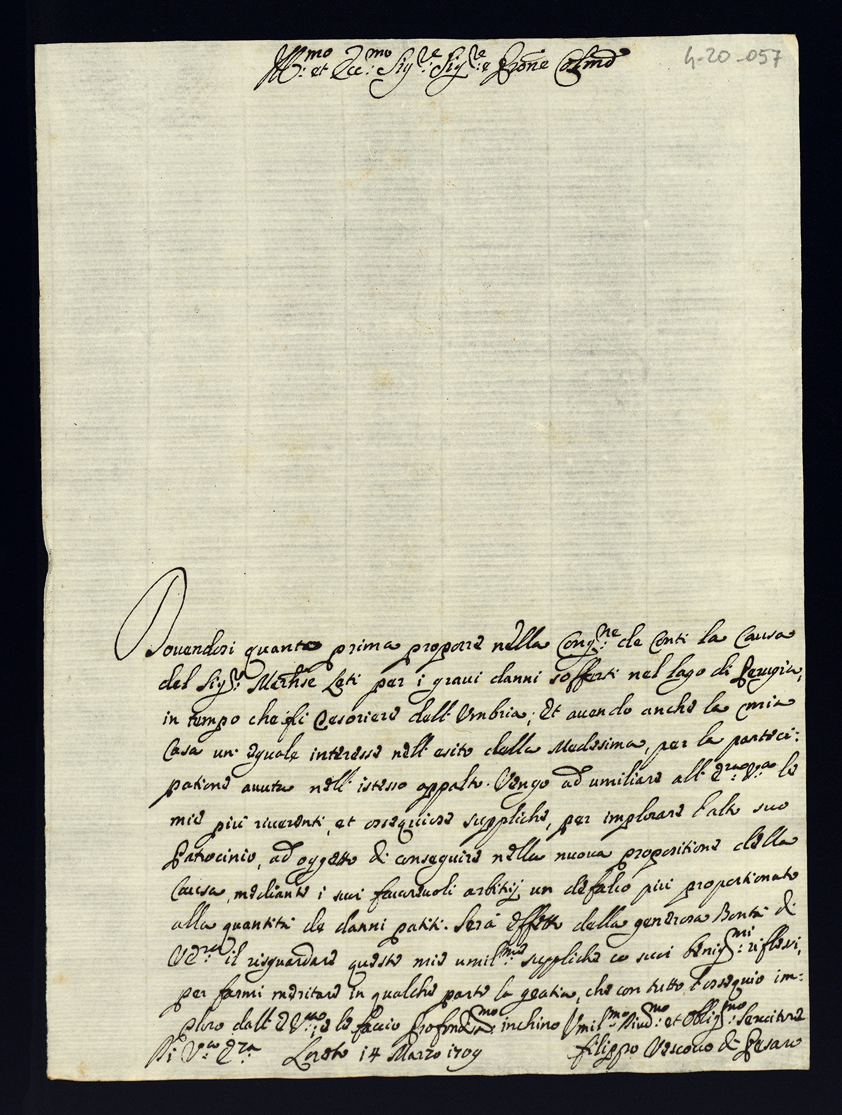 Ill:mo et Ecc:mo Sig:re Sig:re e Prone Colmo
4-20-057
Dovendosi quanto prima proporre nella Cong:ne de Conti la Causa
del Sig:r Marchse Leti per i gravi danni sofferti nel lago di Perugia,
in tempo che fù Tesoriere dell'Umbria; Et avendo anche la mia
Casa un' eguale interesse nell' esito della Medesima, per la parteci:
patione avuta nell' istesso appalto. Vengo ad umiliare all' E:za V:a le
mie più riverenti, et ossequiose suppliche, per implorare l'alto suo
Patrocinio, ad oggetto di conseguire nella nuova propositione della
Causa, mediante i suoi favorevoli arbitrij un defalco più proportionato
alla quantità de danni patiti. Serà effetto della generosa Bontà di
V E:za il risguardare queste mie umil:me suppliche co suoi benig:mi riflessi,
per farmi meritare in qualche parte la gratia, che con tutto l'ossequio im:
ploro dall' E V:, e le faccio profond:mo inchino
Di V:a E:za Loreto 14 Marzo 1709
Umil:mo Div:mo et Oblig:mo Servitore
Filippo Vescovo di Pesaro